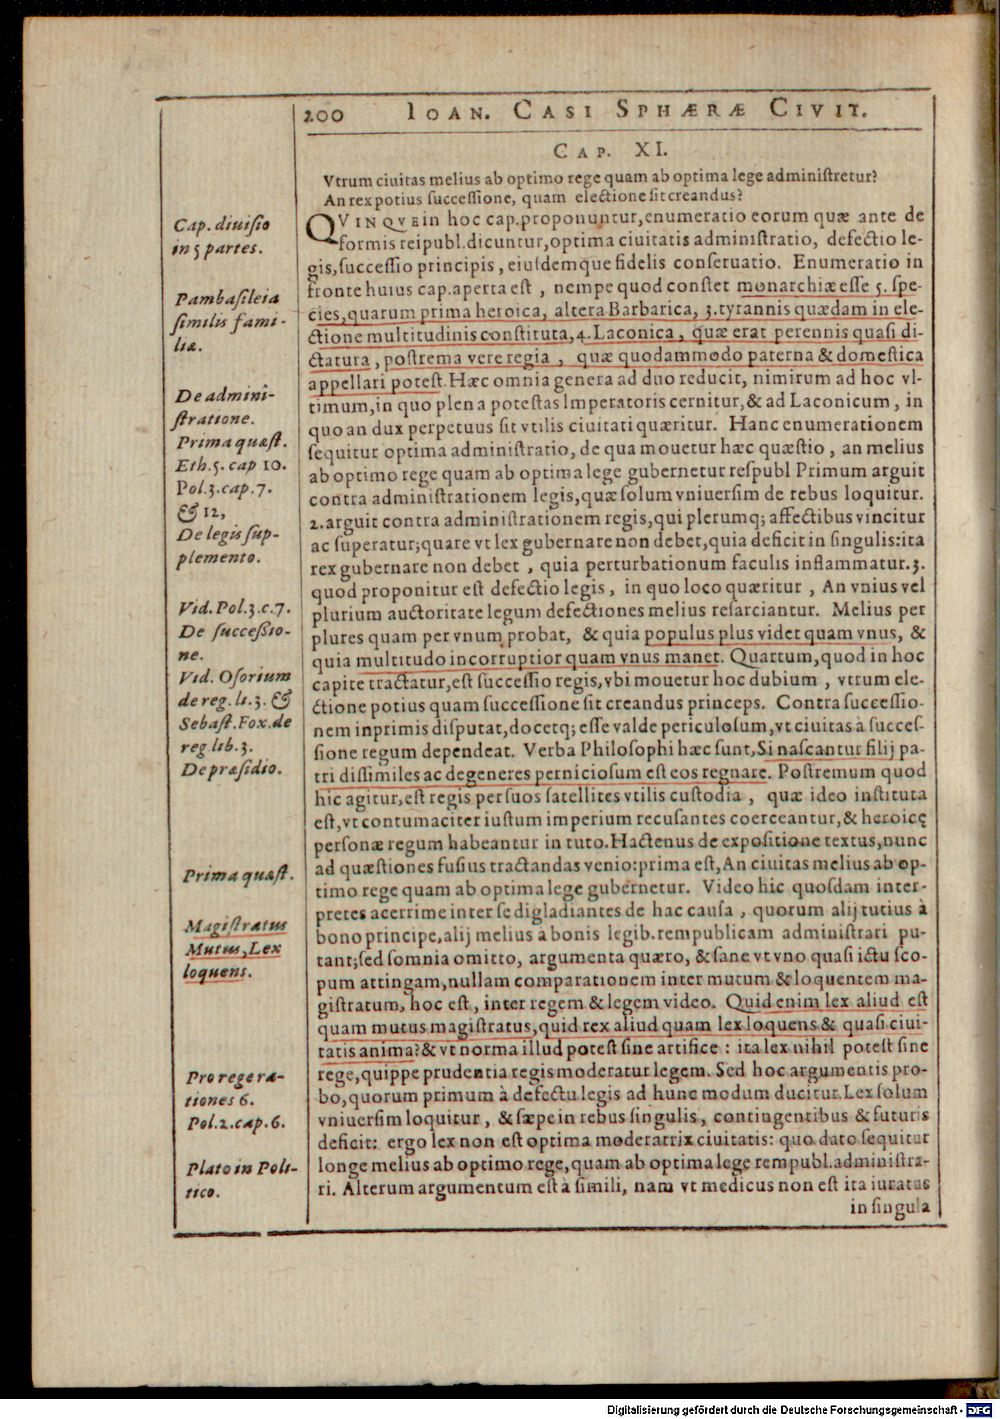 200 IOAN. CASI SPHÆRÆ CIVIT.
CAP. XI.
Vtrum ciuitas melius ab optimo rege quam ab optima lege administretur?
An rex potius successione, quam electione sit creandus?
Cap. diuisio
in 5 partes.
Pambasileia
similis fami-
lia.
De admini-
stratione.
Prima quæst.
Eth. 5. cap 10.
Pol. 3. cap. 7.
& 12,
De legis sup-
plemento.
Vid. Pol. 3. c. 7.
De successio-
ne.
Vid. Osorium
de reg. li. 3. &
Sebast. Fox. de
reg lib. 3.
De præsidio.
Prima quæst.
Magistratus
Mutus, Lex
loquens.
Pro rege ra-
tiones 6.
Pol. 2. cap. 6.
Plato in Poli-
tico.
QVINQVE in hoc cap. proponuntur, enumeratio eorum quæ ante de
formis reipubl. dicuntur, optima ciuitatis administratio, defectio le-
gis, successio principis, eiusdemque fidelis conseruatio. Enumeratio in
fronte huius cap. aperta est, nempe quod constet monarchiæ esse 5. spe-
cies, quarum prima heroica, altera Barbarica, 3. tyrannis quædam in ele-
ctione multitudinis constituta, 4. Laconica, quæ erat perennis quasi di-
ctatura, postrema vere regia, quæ quodammodo paterna & domestica
appellari potest. Hæc omnia genera ad duo reducit, nimirum ad hoc vl-
timum, in quo plena potestas Imperatoris cernitur, & ad Laconicum, in
quo an dux perpetuus sit vtilis ciuitati quæritur. Hanc enumerationem
sequitur optima administratio, de qua mouetur hæc quæstio, an melius
ab optimo rege quam ab optima lege gubernetur respubl Primum arguit
contra administrationem legis, quæ solum vniuersim de rebus loquitur.
2. arguit contra administrationem regis, qui plerumq; affectibus vincitur
ac superatur; quare vt lex gubernare non debet, quia deficit in singulis: ita
rex gubernare non debet, quia perturbationum faculis inflammatur. 3.
quod proponitur est defectio legis, in quo loco quæritur, An vnius vel
plurium auctoritate legum defectiones melius resarciantur. Melius per
plures quam per vnum probat, & quia populus plus videt quam vnus, &
quia multitudo incorruptior quam vnus manet. Quartum, quod in hoc
capite tractatur, est successio regis, vbi mouetur hoc dubium, vtrum ele-
ctione potius quam successione sit creandus princeps. Contra successio-
nem inprimis disputat, docetq; esse valde periculosum, vt ciuitas à succes-
sione regum dependeat. Verba Philosophi hæc sunt, Si nascantur filij pa-
tri dissimiles ac degeneres perniciosum est eos regnare. Postremum quod
hic agitur, est regis per suos satellites vtilis custodia, quæ ideo instituta
est, vt contumaciter iustum imperium recusantes coerceantur, & heroicę
personæ regum habeantur in tuto. Hactenus de expositione textus, nunc
ad quæstiones fusius tractandas venio: prima est, An ciuitas melius ab op-
timo rege quam ab optima lege gubernetur. Video hic quosdam inter-
pretes acerrime inter se digladiantes de hac causa, quorum alij tutius à
bono principe, alij melius à bonis legib. rempublicam administrari pu-
tant; sed somnia omitto, argumenta quæro, & sane vt vno quasi ictu sco-
pum attingam, nullam comparationem inter mutum & loquentem ma-
gistratum, hoc est, inter regem & legem video. Quid enim lex aliud est
quam mutus magistratus, quid rex aliud quam lex loquens & quasi ciui-
tatis anima? & vt norma illud potest sine artifice: ita lex nihil potest sine
rege, quippe prudentia regis moderatur legem. Sed hoc argumentis pro-
bo, quorum primum à defectu legis ad hunc modum ducitur. Lex solum
vniuersim loquitur, & sæpe in rebus singulis, contingentibus & futuris
deficit: ergo lex non est optima moderatrix ciuitatis: quo dato sequitur
longe melius ab optimo rege, quam ab optima lege rempubl. administra-
ri. Alterum argumentum est à simili, nam vt medicus non est ita iuratus
in singula
Digitalisierung gefördert durch die Deutsche Forschungsgemeinschaft - DFG